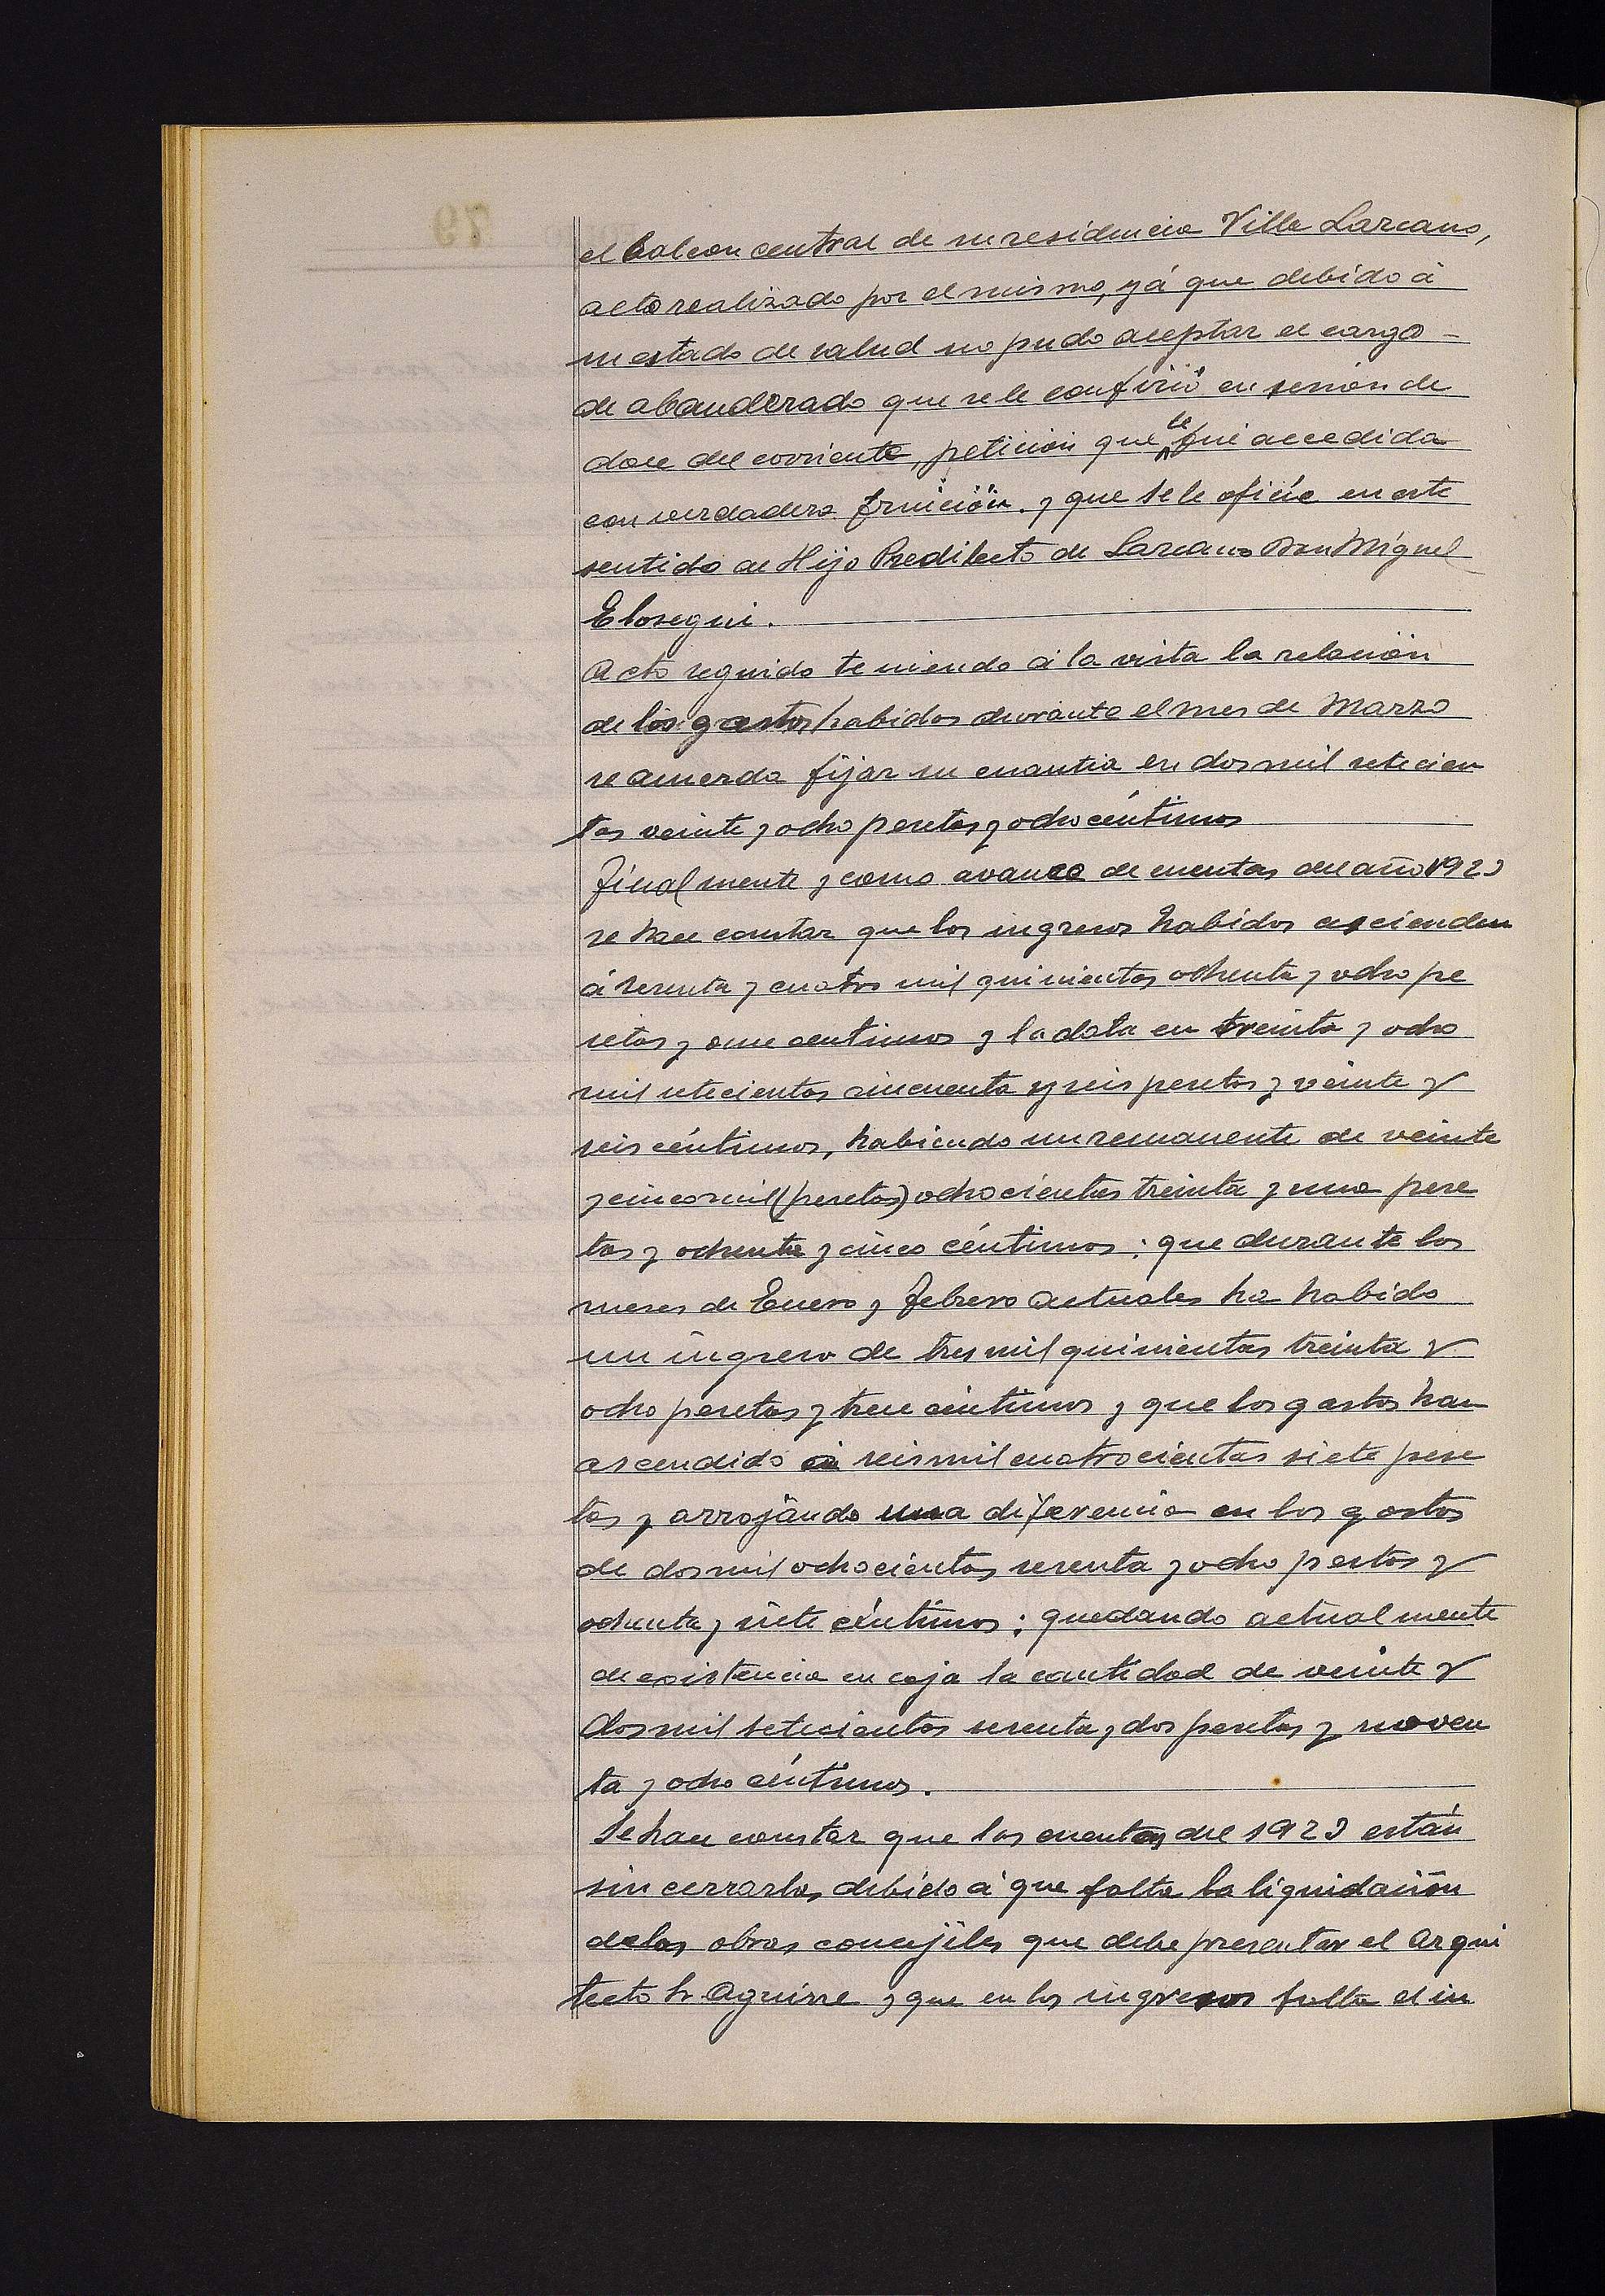 el balcon central de su residencia Villa Lazcano,
acto realizado por el mismo, yá que debido á
su estado de salud no pudo aceptar el cargo -
de abanderado que se le confirió en sesion de
doce del corriente, petición que le fué accedida
con verdadera fruición. y que se le oficie en este
sentido al Hijo Predilecto de Lazcano Don Miguel
Elosegui.
Acto seguido teniendo á la vista la relación
de los gastos habidos durante el mes de Marzo
se acuerda fijar su cuantia en dos mil setecien
tas veinte y ocho pesetas y ocho céntimos
Finalmente y como avance de cuentas del año 1923
se hace constar que los ingresos habidos ascienden
á sesenta y cuatro mil quinientas ochenta y ocho pe
setas y once centimos y la data en treinta y ocho
mil setecientas cincuenta y seis pesetas y veinte y
seis céntimos, habiendo un remanente de veinte
y cinco mil (pesetas) ochocientas treinta y una pese
tas y ochenta y cinco céntimos: que durante los
meses de Enero y Febrero actuales ha habido
un ingreso de tres mil quinientas treinta y
ocho pesetas y trece céntimos y que los gastos han
ascendido á seis mil cuatrocientas siete pese
tas y arrojando una diferencia en los gastos
de dos mil ochocientas sesenta y ocho pestas y
ochenta y siete céntimos; quedando actualmente
de existencia en caja la cantidad de veinte y
dos mil setecientas sesenta y dos pesetas y noven
ta y ocho céntimos.
Se hace constar que las cuentas del 1923 están
sin cerrarlas, debido á que falta la liquidación
de las obras concejiles que debe presentar el Arqui
tecto Sr. Aguirre y que en los ingresos falta el in
79